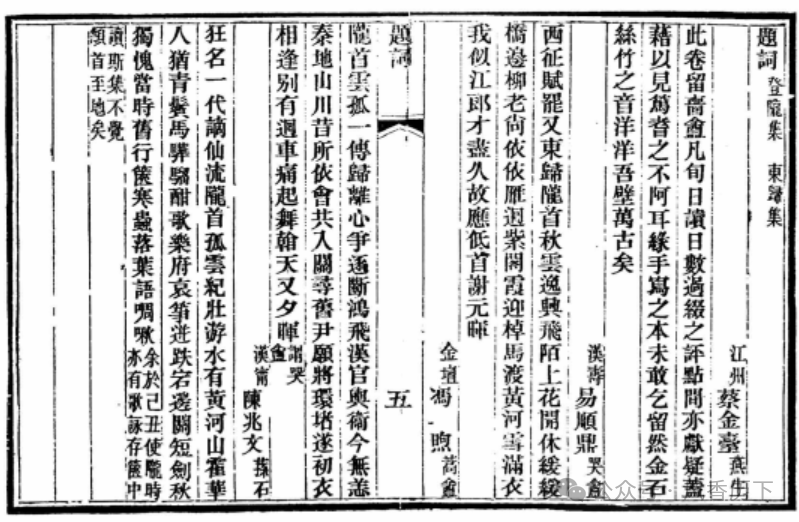 題詞 登隴集 東歸集
江州 蔡金臺 燕生
此卷留嗇盦凡旬日讀日數過綴之評點間亦獻疑蓋
藉以見篤耆之不阿耳緣手寫之本未敢乞留然金石
絲竹之音洋洋吾壁萬古矣
漢壽 易順鼎 哭盦
西征賦罷又東歸隴首秋雲逸興飛陌上花開休緩緩
橋邊柳老尙依依雁迴紫閣霞迎棹馬渡黃河雪滿衣
我似江郎才盡久故應低首謝元暉
金壇 馮煦 蒿盦
題詞 五
隴首雲孤一傳歸離心爭逐斷鴻飛漢官輿衛今無恙
秦地山川昔所依會共入關尋舊尹願將環堵遂初衣
相逢别有迴車痛起舞翰天又夕暉 謂哭盦
漢甯 陳兆文 蓀石
狂名一代謫仙流隴首孤雲紀壯游水有黃河山霍華
人猶青鬢馬驊騮酣歌樂府哀箏迸跌宕邊關短劍秋
獨愧當時舊行篋寒蟲落葉語啁啾 余於己丑使隴時
亦有歌詠存篋中
讀斯集不覺
頫首至地矣
公众号